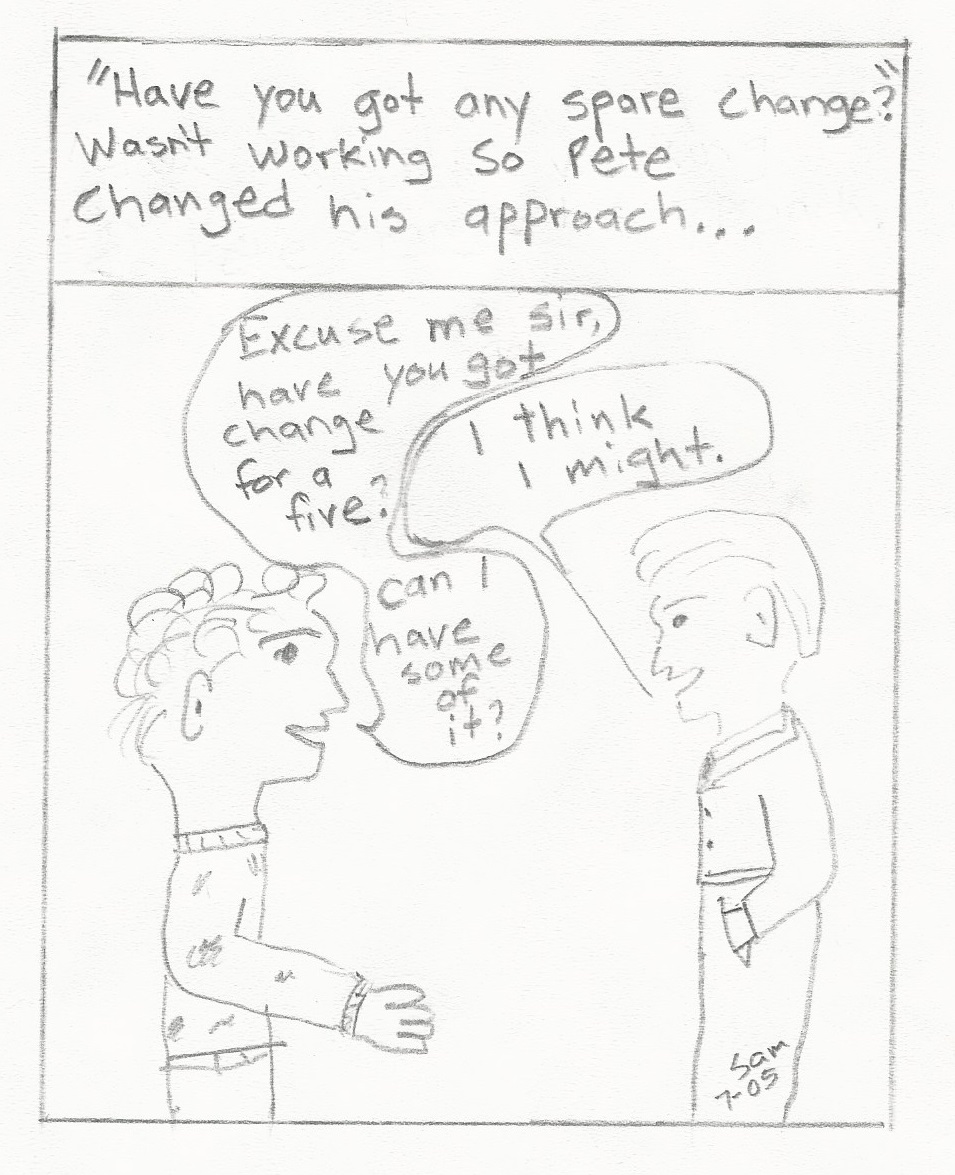 "Have you got any spare change?"
Wasn't working so Pete
Changed his approach...
Excuse me sir,
have you got
change
for a
five?
I think
I might.
Can I
have
some
of
it?
Sam
7-05